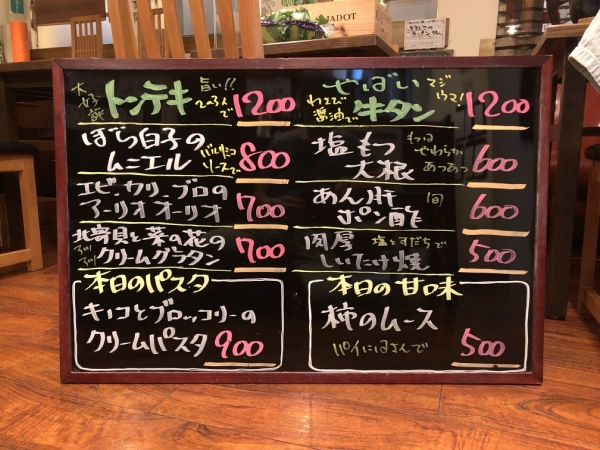 大好評
トンテキ
旨い!!
2〜3人で
1200
ぼら白子の
ムニエル
バルサミコ
ソースで
800
エビ、カリ、ブロの
アーリオオーリオ
700
北寄貝と菜の花の
クリームグラタン
アツアツ
700
本日のパスタ
キノコとブロッコリーの
クリームパスタ 900
やばい
牛タン
マジ
ウマ!
わさび
醤油で
1200
塩もつ
大根
もつは
やわらか
あつあつ
600
あん肝
ポン酢
旬
600
肉厚
しいたけ焼
塩とすだちで
500
本日の甘味
柿のムース
パイにはさんで
500
JADOT